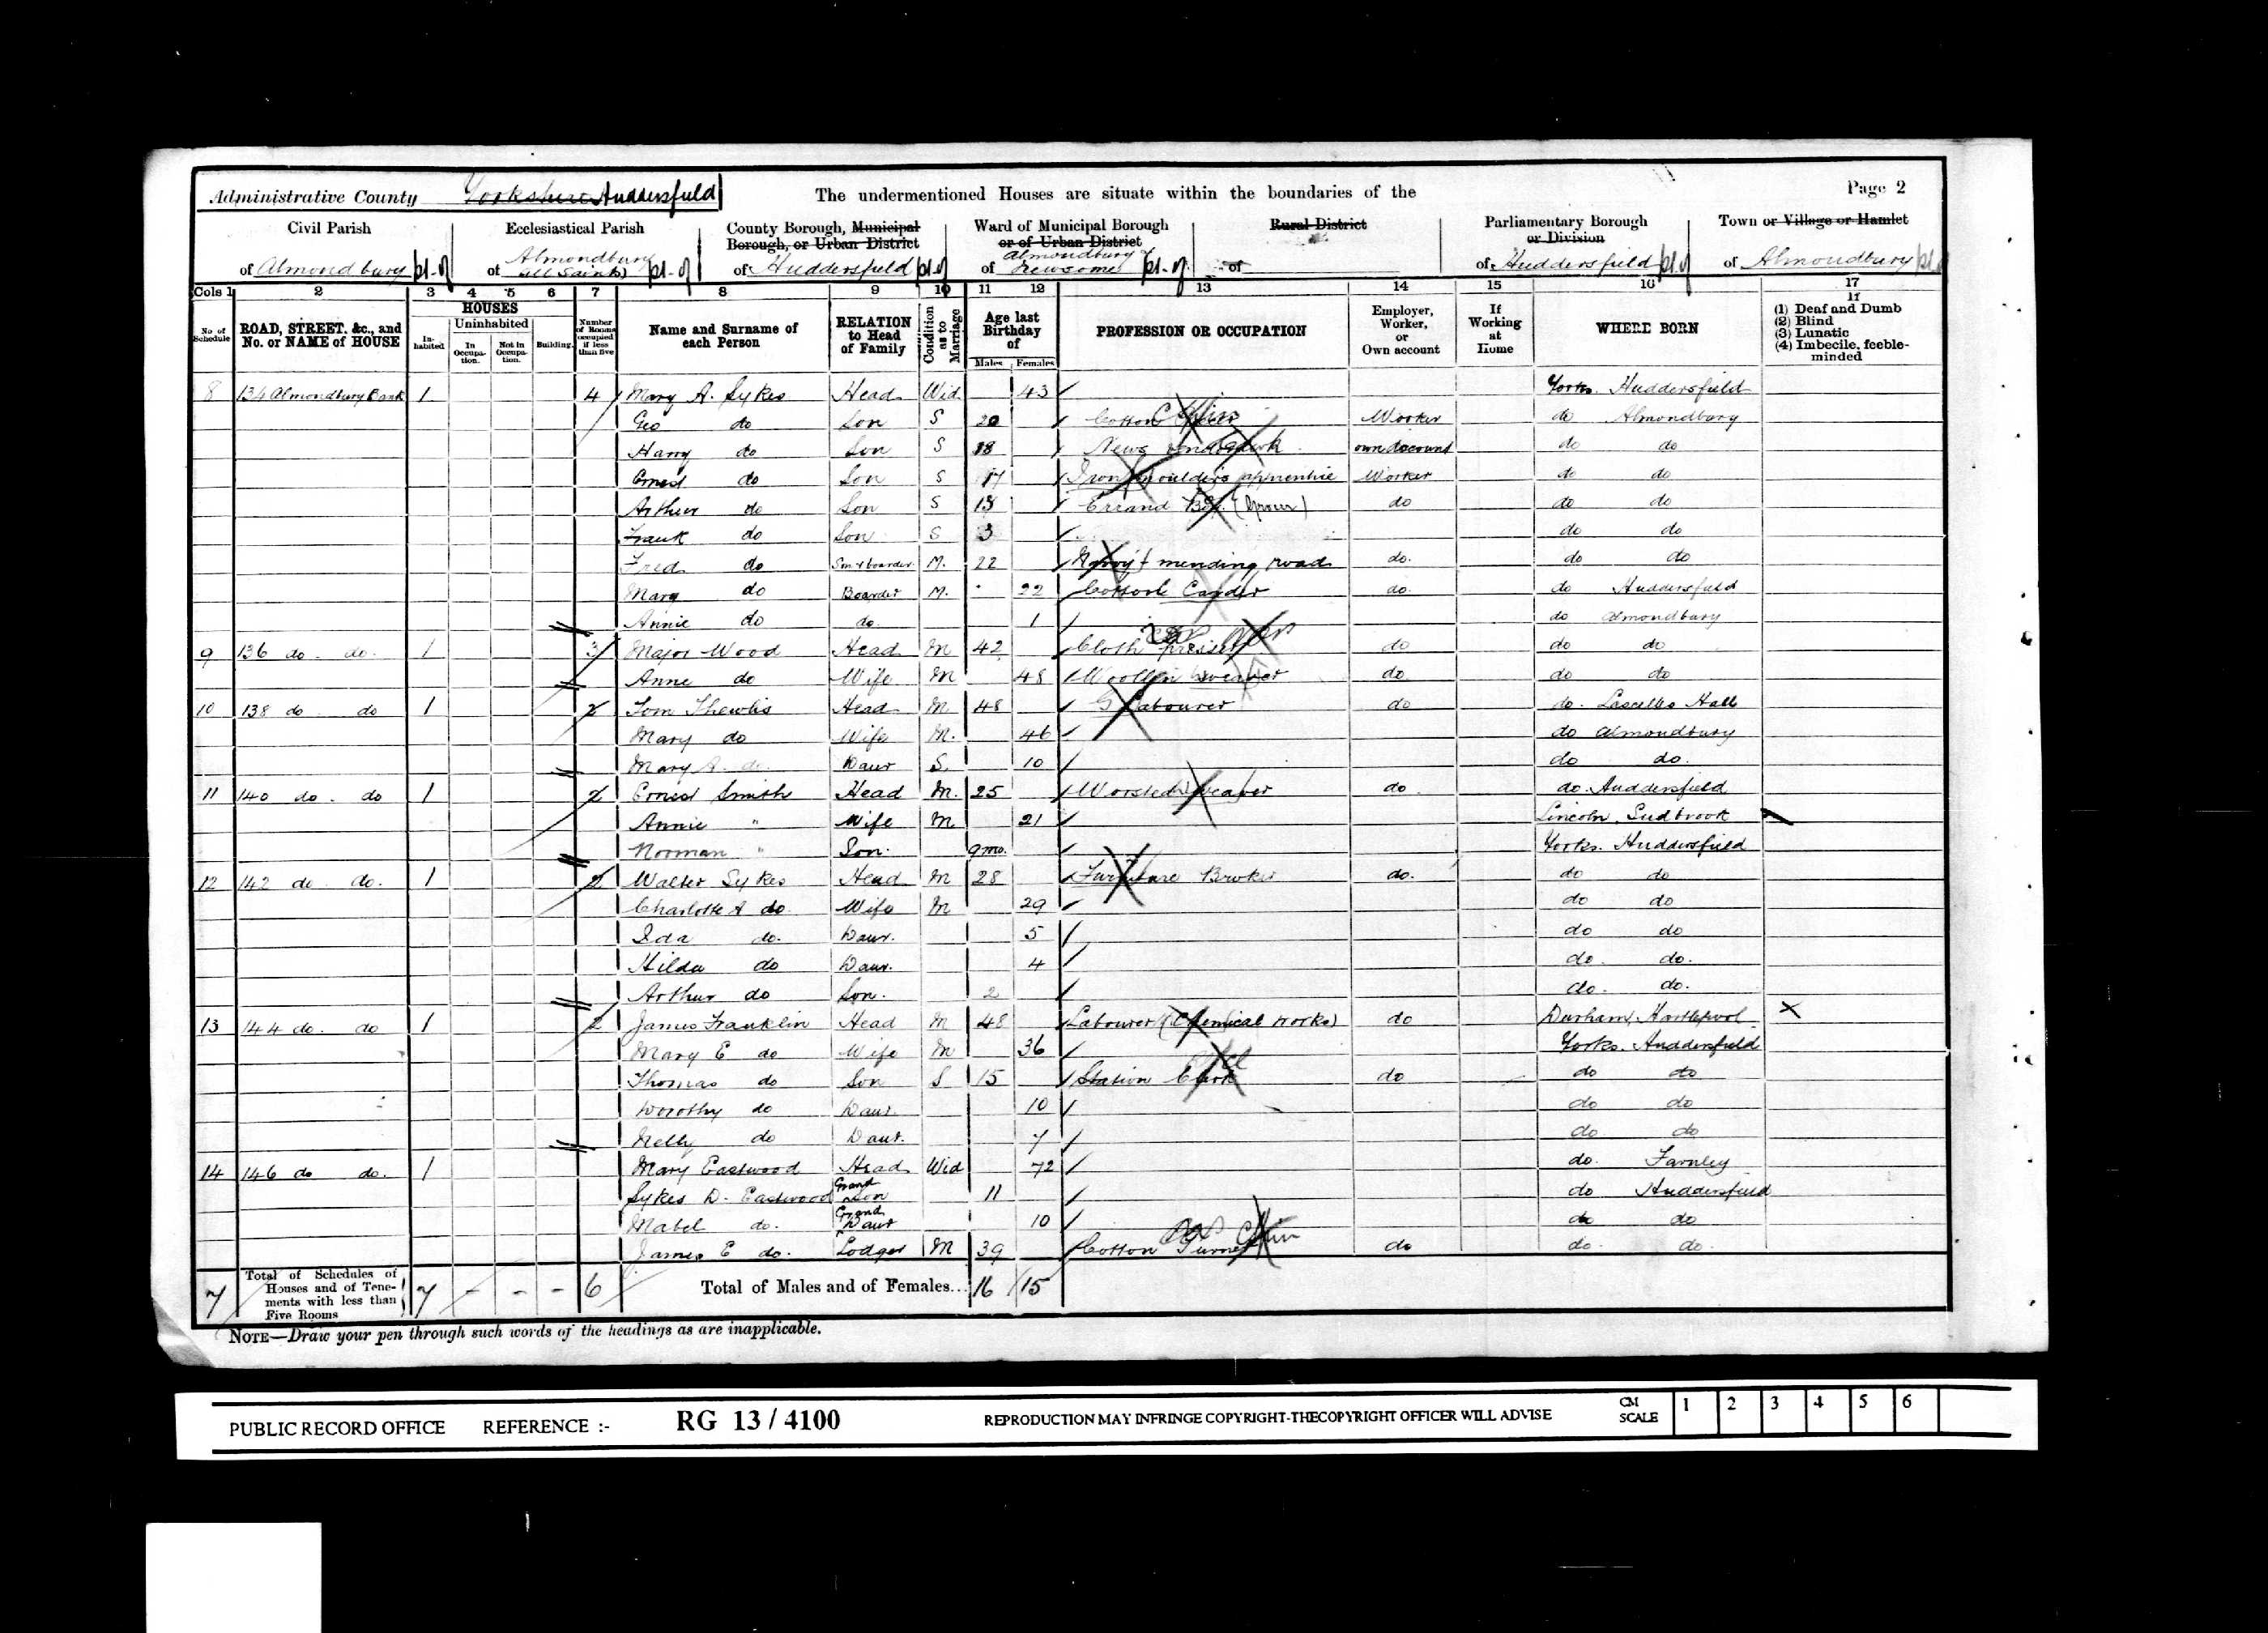 Administrative County Yorkshire Huddersfield The undermentioned Houses are situate within the boundaries of the Page 2
Civil Parish Ecclesiastical Parish County Borough, Municipal Borough, or Urban District Ward of Municipal Borough or of Urban District Rural District Parliamentary Borough or Division Town or Village or Hamlet
of Almondbury pt. of of Almondbury All Saints pt. of of Huddersfield pt. of of Almondbury & Newsome pt. of of of Huddersfield pt. of of Almondbury
Cols 1 2 3 4 5 6 7 8 9 10 11 12 13 14 15 16 17
No of Schedule ROAD, STREET, &c., and No. or NAME of HOUSE HOUSES Inhabited Uninhabited In Occupation. Not in Occupation. Building. Number of Rooms occupied if less than five Name and Surname of each Person RELATION to Head of Family Condition as to Marriage Age last Birthday of Males Females PROFESSION OR OCCUPATION Employer, Worker, or Own account If Working at Home WHERE BORN If (1) Deaf and Dumb (2) Blind (3) Lunatic (4) Imbecile, feeble-minded
8 134 Almondbury Bank 1 4 Mary A. Sykes Head Wid 43 Yorks. Huddersfield
Geo do Son S 20 Cotton Worker do Almondbury
Harry do Son S 18 News own account do do
Ernest do Son S 17 Iron Moulders apprentice Worker do do
Arthur do Son S 15 Errand Boy (Grocer) do do do
Frank do Son S 3 do do
Fred do Son & boarder M. 22 Navvy mending road do. do do
Mary do Boarder M. 22 Cotton Carder do do Huddersfield
Annie do do 1 do Almondbury
9 136 do. do. 1 3 Major Wood Head M 42 Cloth Presser do do do
Anne do Wife M 48 Woollen Weaver do do do
10 138 do do 1 2 Tom Thewlis Head M 48 G Labourer do do. Lascelles Hall
Mary do Wife M. 46 do Almondbury
Mary A. do. Daur S. 10 do do.
11 140 do. do 1 2 Ernest Smith Head M. 25 Worsted Weaver do do. Huddersfield
Annie " Wife M 21 Lincoln, Sudbrook
Norman " Son. 9 mo. Yorks. Huddersfield
12 142 do. do. 1 2 Walter Sykes Head M 28 Furniture Broker do. do do
Charlotte A do. Wife M 29 do do
Ida do. Daur. 5 do do
Hilda do Daur. 4 do. do.
Arthur do Son. 2 do. do.
13 144 do. do 1 2 James Franklin Head M 48 Labourer (Chemical Works) do Durham, Hartlepool
Mary E do Wife M 36 Yorks. Huddersfield
Thomas do Son S 15 Station Clerk do do do
Dorothy do Daur. 10 do do
Nelly do Daur. 7 do do
14 146 do do. 1 Mary Eastwood Head Wid 72 do. Farnley
Sykes D. Eastwood Grand Son 11 do Huddersfield
Mabel do. Grand Daur 10 do do
James E do. Lodger M 39 Cotton do do. do.
7 Total of Schedules of Houses and of Tenements with less than Five Rooms 7 - - - 6 Total of Males and of Females... 16 15
NOTE—Draw your pen through such words of the headings as are inapplicable.
PUBLIC RECORD OFFICE REFERENCE :- RG 13 / 4100 REPRODUCTION MAY INFRINGE COPYRIGHT-THE COPYRIGHT OFFICER WILL ADVISE CM SCALE 1 2 3 4 5 6